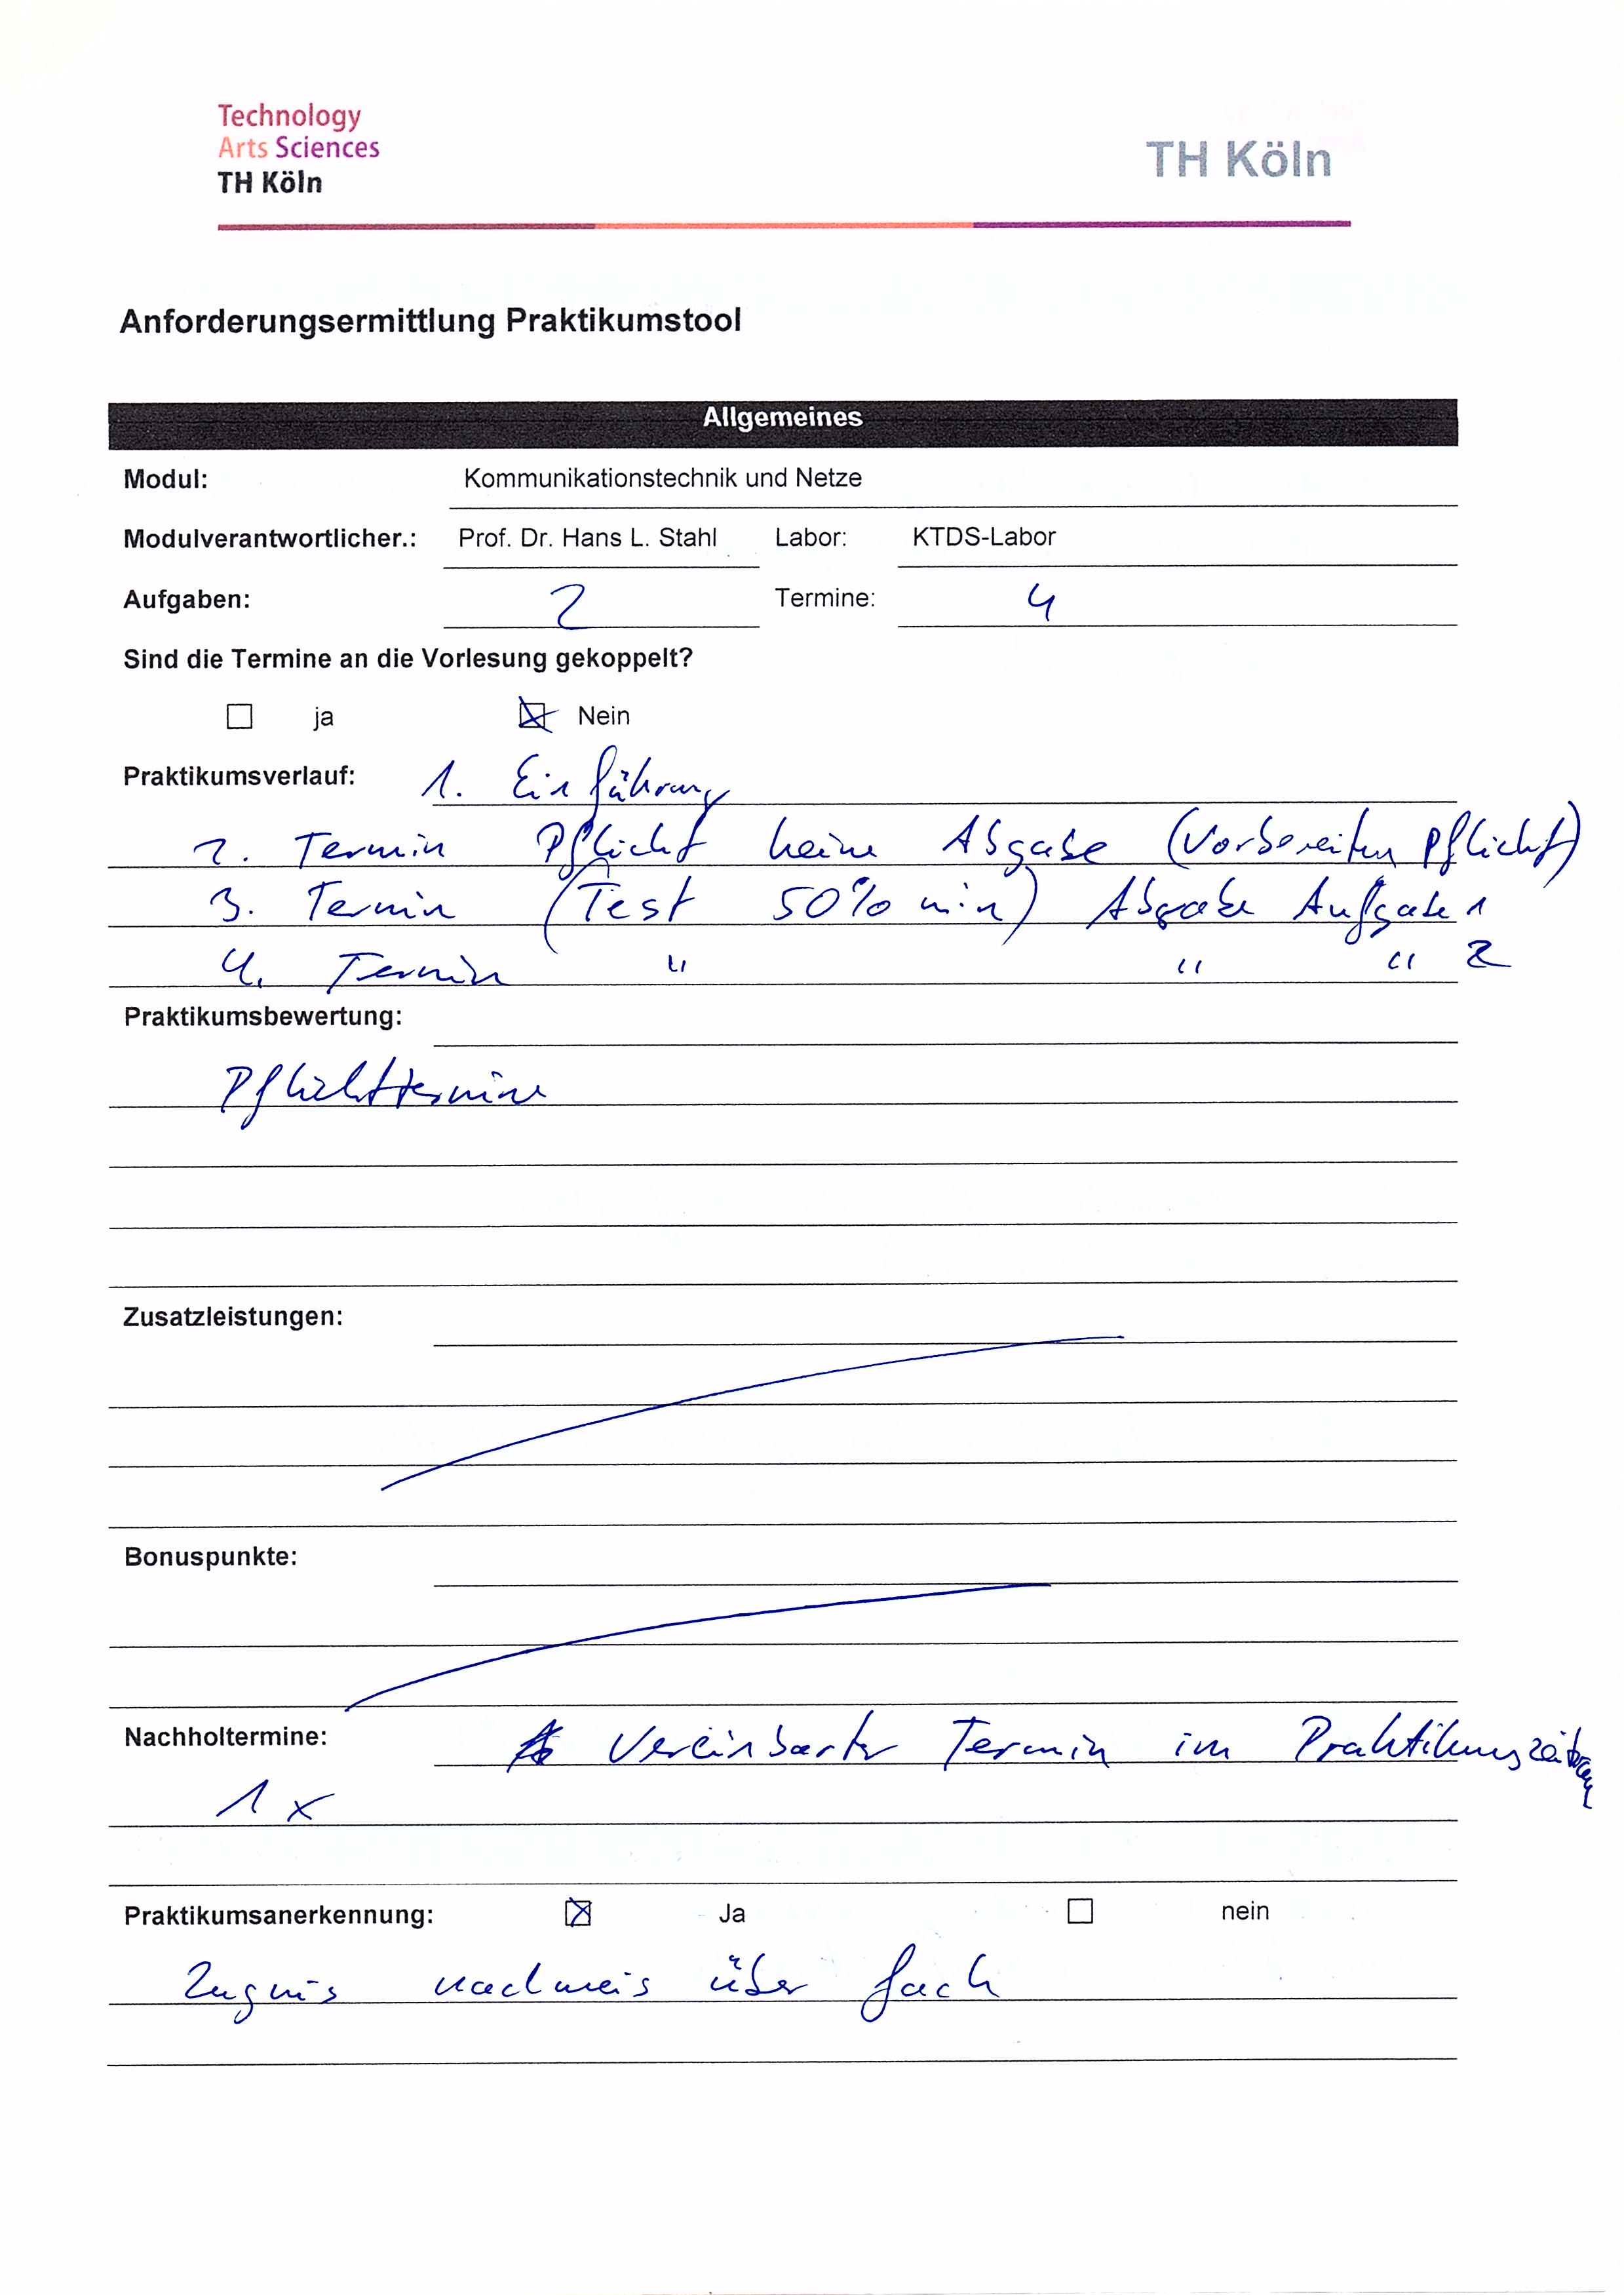 Technology
Arts Sciences
TH Köln
TH Köln
Anforderungsermittlung Praktikumstool
Allgemeines
Modul: Kommunikationstechnik und Netze
Modulverantwortlicher.: Prof. Dr. Hans L. Stahl Labor: KTDS-Labor
Aufgaben: 2 Termine: 4
Sind die Termine an die Vorlesung gekoppelt?
ja Nein
Praktikumsverlauf: 1. Einführung
2. Termin Pflicht keine Abgabe (Vorbereiten Pflicht)
3. Termin (Test 50% min) Abgabe Aufgabe 1
4. Termin " " " 2
Praktikumsbewertung:
Pflichttermine
Zusatzleistungen:
Bonuspunkte:
Nachholtermine: Vereinbarter Termin im Praktikumszeitraum
1 x
Praktikumsanerkennung: Ja nein
Zeugnis nachweis über fach